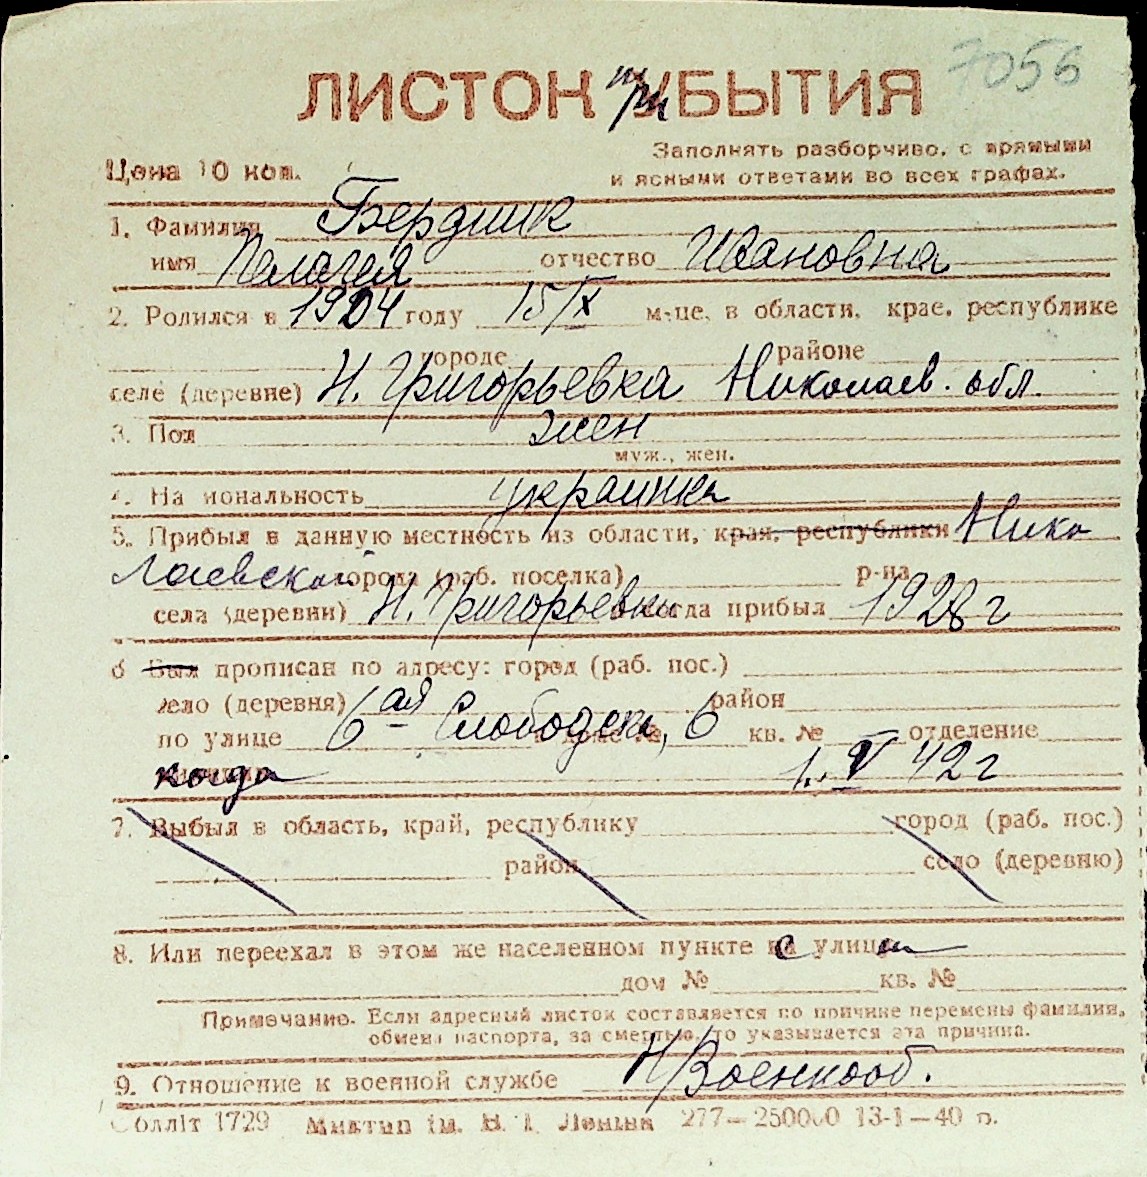 7056
ЛИСТОК при УБЫТИЯ
Цена 10 коп.
Заполнять разборчиво, с прямыми
и ясными ответами во всех графах.
1. Фамилия Бердник
имя Пелагея отчество Ивановна
2. Родился в 1904 году 15/X м-це, в области, крае, республике
городе районе
селе (деревне) Н. Григорьевка Николаев. обл.
3. Пол жен
муж., жен.
4. Национальность украинка
5. Прибыл в данную местность из области, края, республики Нико
лаевской города (раб. поселка) р-на
села (деревни) Н. Григорьевки когда прибыл 1928 г
6 Был прописан по адресу: город (раб. пос.)
село (деревня) район
по улице 6 ая Слободск, дом № 6 кв. № отделение
когда 1. V 42 г
7. Выбыл в область, край, республику город (раб. пос.)
район село (деревню)
8. Или переехал в этом же населенном пункте с улицы
дом № кв. №
Примечание. Если адресный листок составляется по причине перемены фамилии,
обмена паспорта, за смертью, то указывается эта причина.
9. Отношение к военной службе Н/Военнооб.
Обллiт 1729 Миктип iм. В. I. Ленiна 277—250000 13-1—40 р.